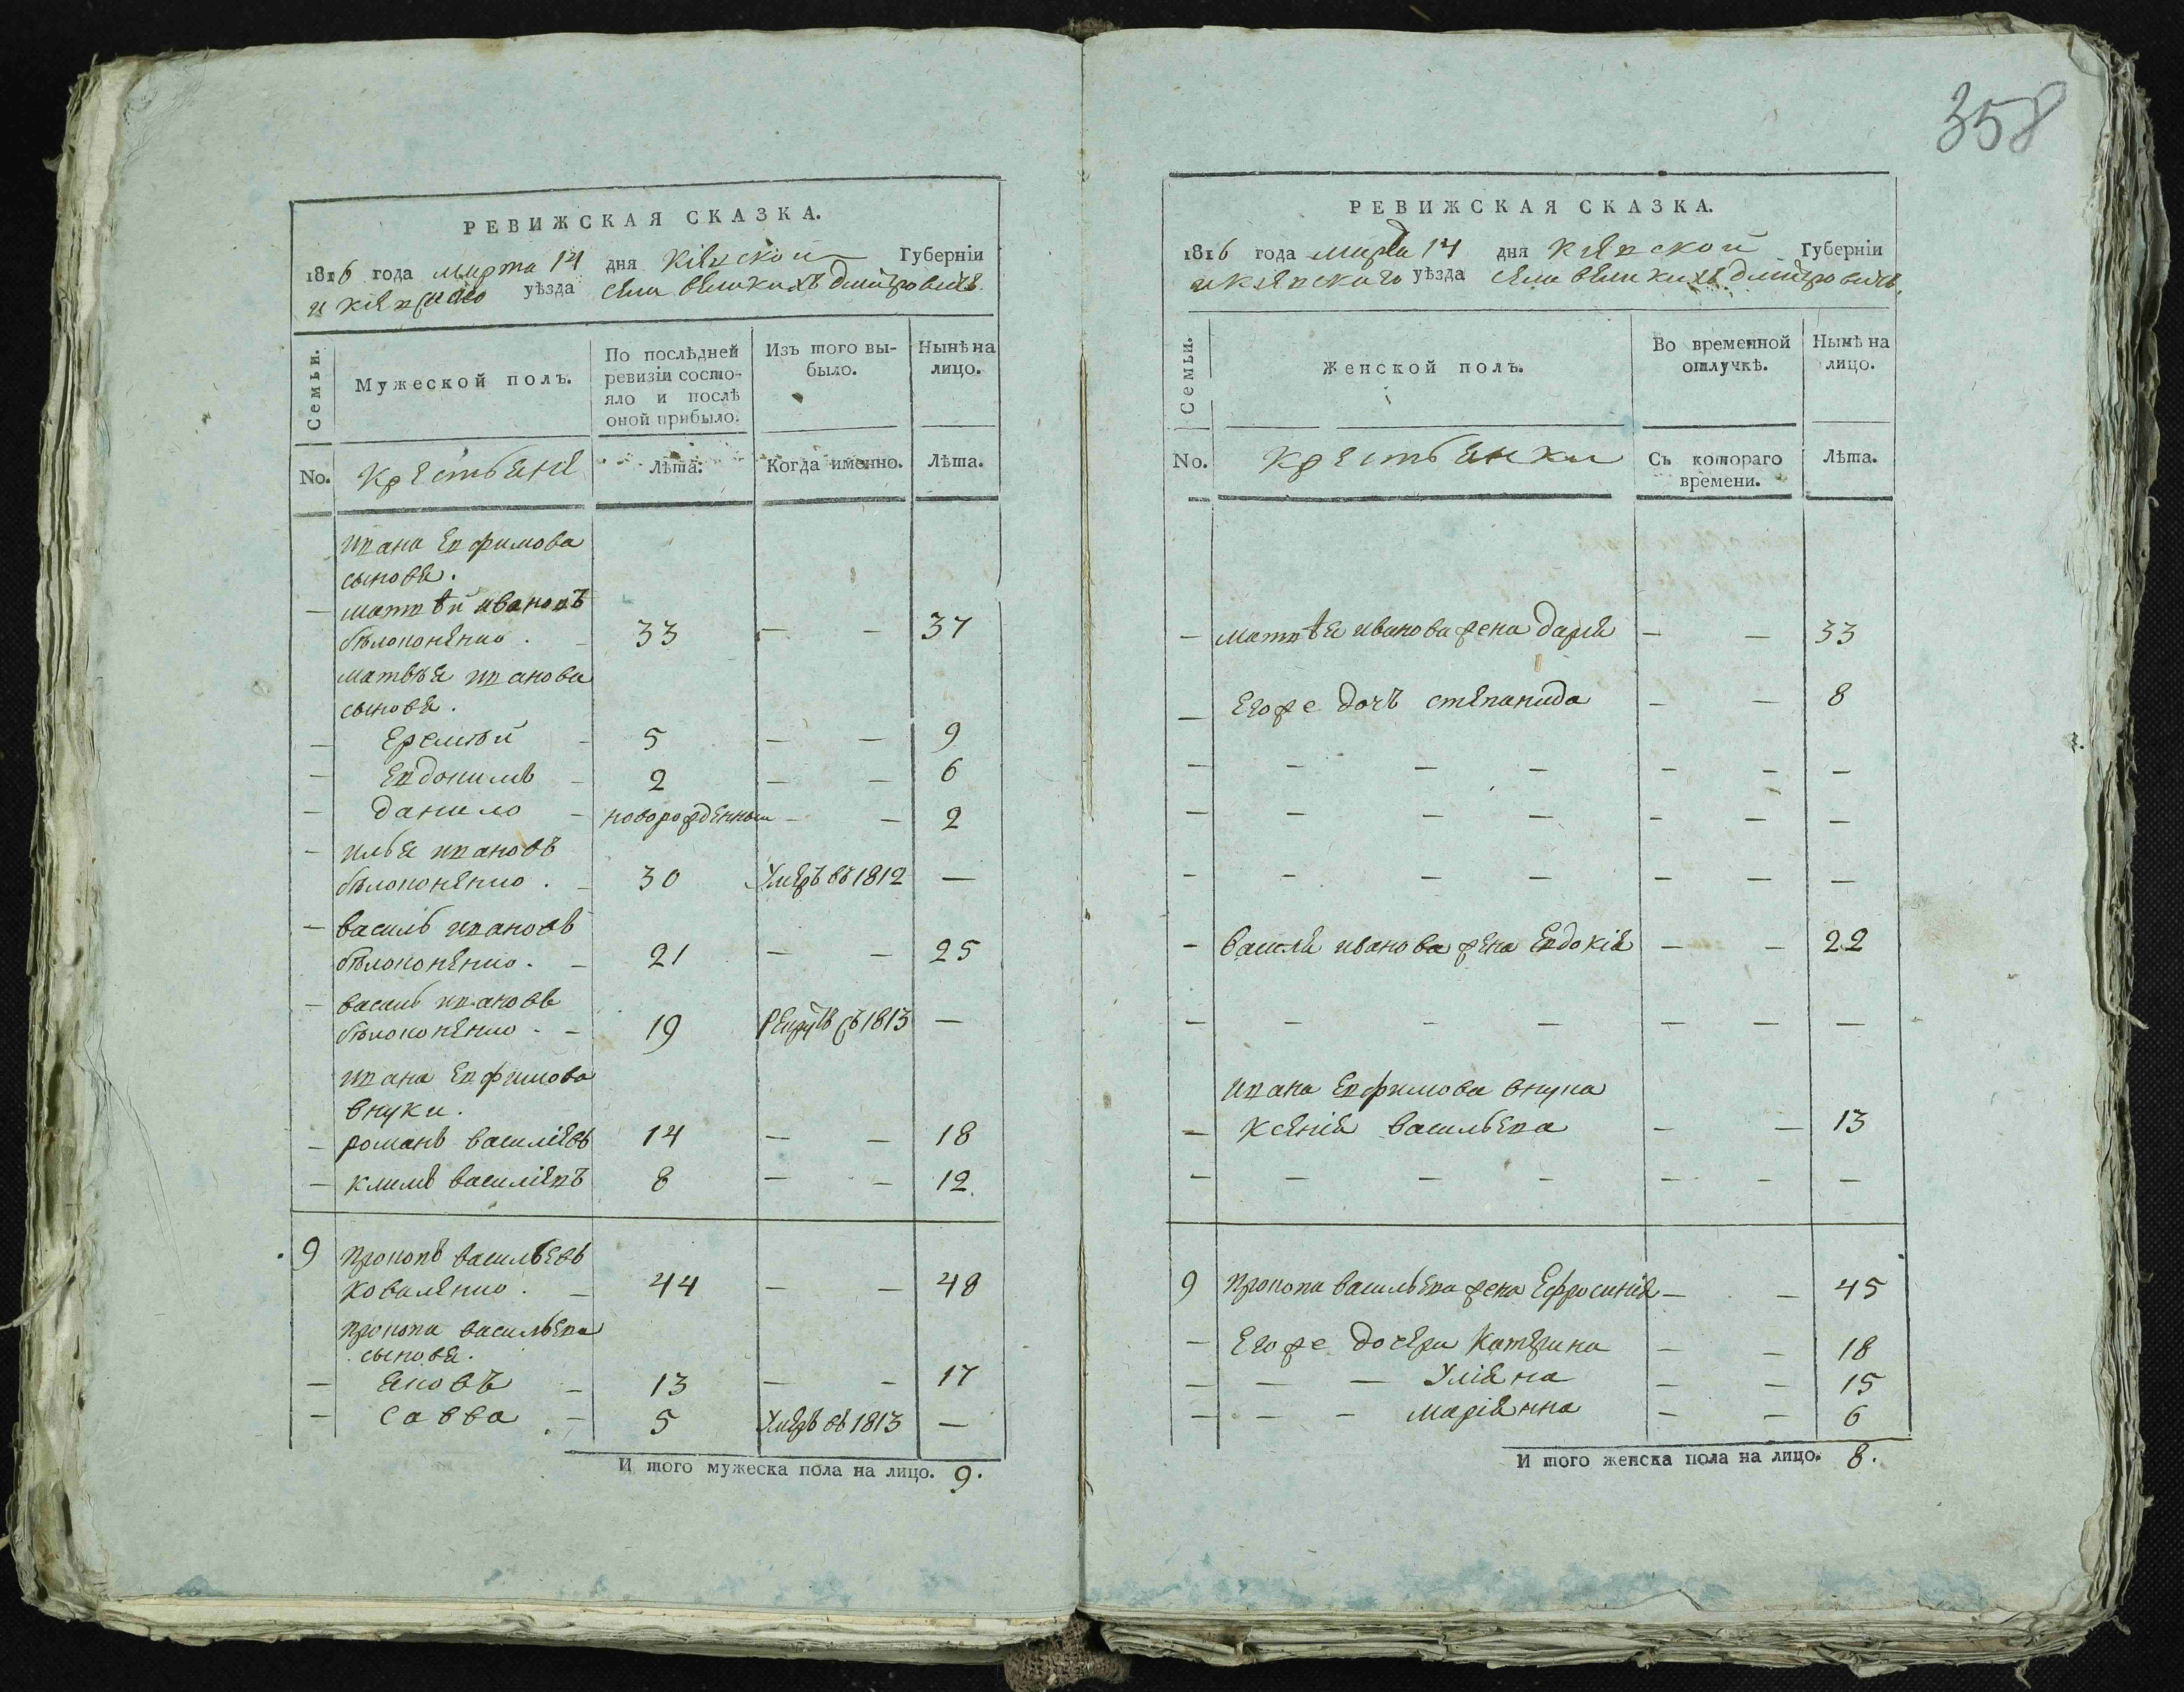 358
РЕВИЖСКАЯ СКАЗКА.
1816 года марта 14 дня Кіевской Губерніи
и кіевскаго уѣзда села великихъ дмитровичъ.
Семьи.
Мужеской полъ.
По послѣдней
ревизіи состо-
яло и послѣ
оной прибыло.
Изъ того вы-
было.
Нынѣ на
лицо.
No. Крестьяне Лѣта. Когда именно. Лѣта.
ивана Евфимова
сыновя.
— матвѣй ивановъ
бѣлоконенко . — 33 — — 37
матвѣя иванова
сыновя.
— Еремѣй — 5 — — 9
— Евдокимъ — 2 — — 6
— данило — новорожденный — — 2
— илья ивановъ
бѣлоконенко . — 30 Умеръ въ 1812 —
— василь ивановъ
бѣлоконенко . — 21 — — 25
— василь ивановъ
бѣлоконенко . — 19 Рекрутъ въ 1813 —
ивана Евфимова
внуки.
— романъ василіевъ 14 — — 18
— климъ василіевъ 8 — — 12.
9 прокопъ васильевъ
коваленко . — 44 — — 48
прокопа васильева
сыновя.
— яковъ — 13 — — 17
— савва . — 5 Умеръ въ 1813 —
И того мужеска пола на лицо. 9.
РЕВИЖСКАЯ СКАЗКА.
1816 года марта 14 дня кіевской Губерніи
и кіевскаго уѣзда села великихъ дмитровичъ.
Семьи.
Женской полъ.
Во временной
отлучкѣ.
Нынѣ на
лицо.
No. Крестьянки Съ котораго
времени. Лѣта.
— матвѣя иванова жена дарія — — 33
— Егоже дочъ степанида — — 8
— — — — — — —
— — — — — — —
— — — — — — —
— василя иванова жена Евдокія — — 22
— — — — — — —
ивана Евфимова внука
— ксенія васильева — — 13
— — — — — — —
9 прокопа васильева жена Ефросинія — — 45
— Егоже дочери катерина — — 18
— — — Уліяна — — 15
— — — маріянна — — 6
И того женска пола на лицо. 8.